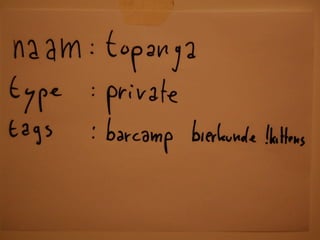 naam : topanga
type : private
tags : barcamp bierkunde !kittens